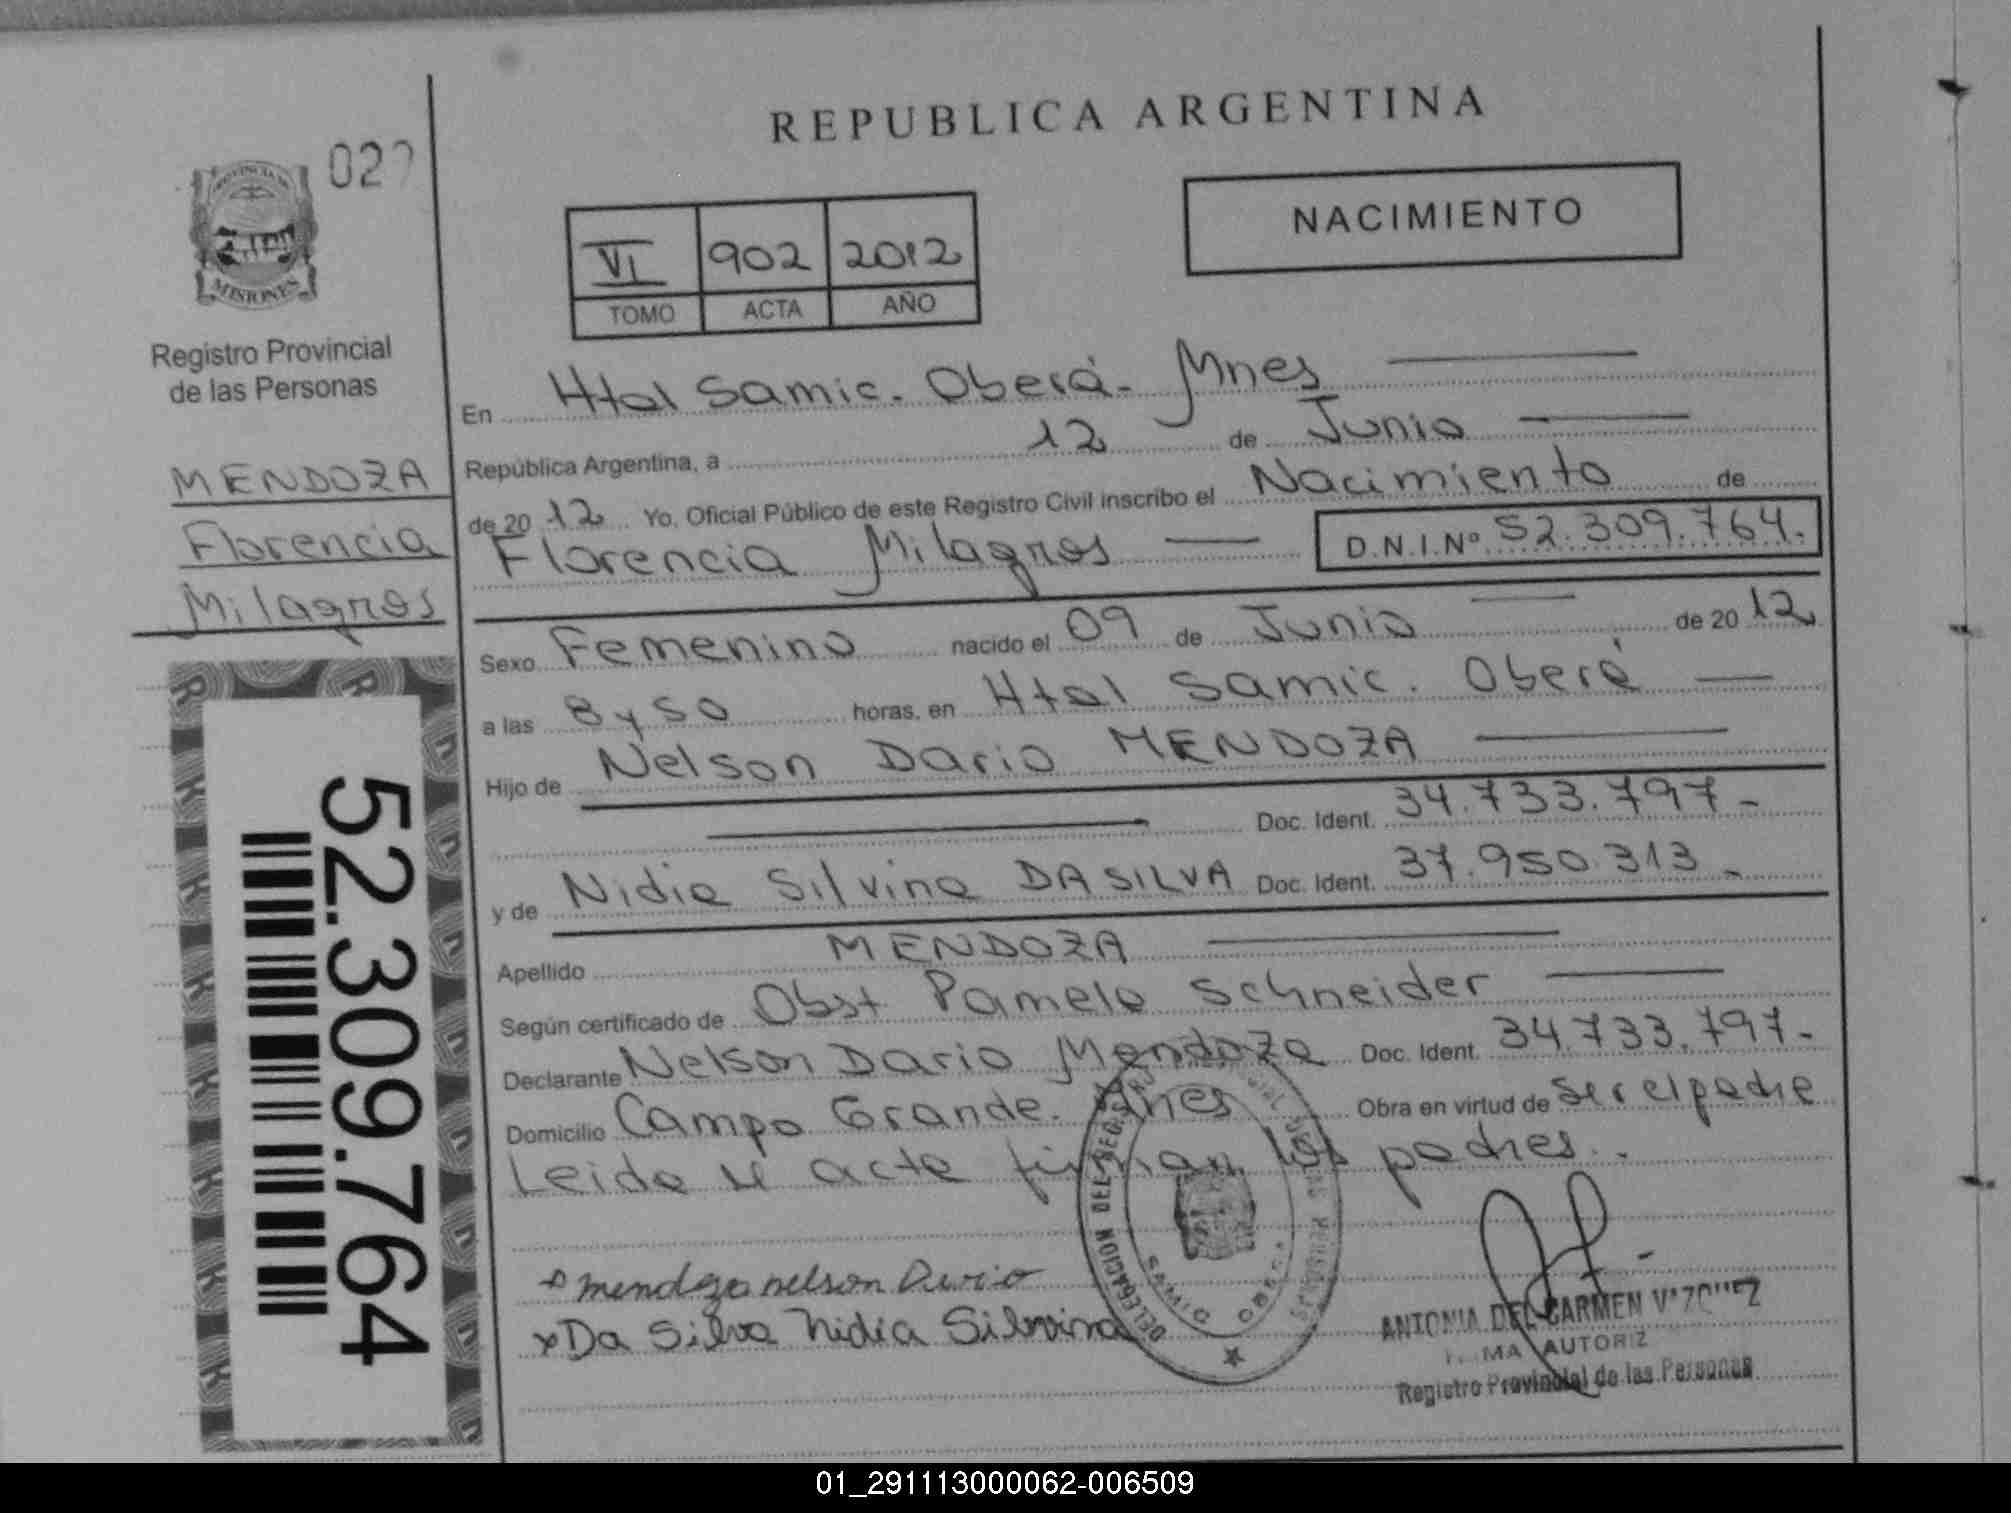 REPUBLICA ARGENTINA
PROVINCIA DE
MISIONES
NACIMIENTO
VI 902 2012
TOMO ACTA AÑO
Registro Provincial
de las Personas
MENDOZA
Florencia
Milagros
52.309.764
En Htal Samic. Oberá - Mnes
República Argentina, a 12 de Junio
de 20 12 Yo, Oficial Público de este Registro Civil inscribo el Nacimiento de
Florencia Milagros D.N.I.Nº 52.309.764.
Sexo Femenino nacido el 09 de Junio de 20 12
a las 8 y 50 horas, en Htal Samic. Oberá
Hijo de Nelson Dario MENDOZA
Doc. Ident. 34.733.797-
y de Nidia Silvina DA SILVA Doc. Ident. 37.950.313-
Apellido MENDOZA
Según certificado de Obst Pamela Schneider
Declarante Nelson Dario Mendoza Doc. Ident. 34.733.797-
Domicilio Campo Grande. Mnes Obra en virtud de ser el padre
Leida el acta firman los padres.
mendoza nelson Dario
x Da Silva Nidia Silvina
DELEGACION DEL REG.
OBERA
ANTONIA DEL CARMEN
AUTORIZ
Registro Provincial de las Personas
01_291113000062-006509